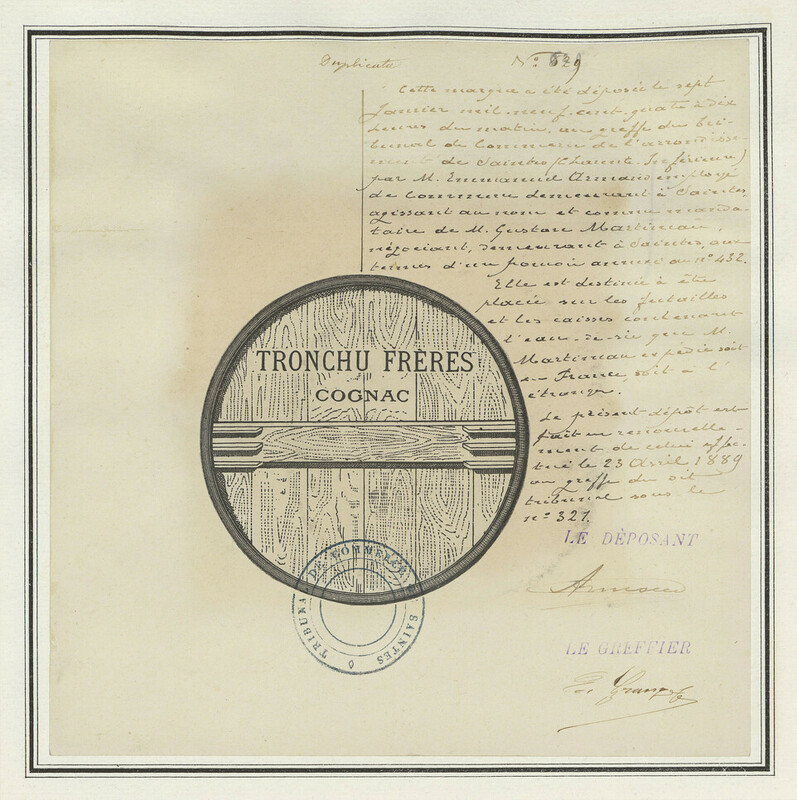 Duplicata
N° 529
Cette marque a été déposée le sept
Janvier mil-neuf-cent-quatre à dix
heures du matin, au greffe du Tri-
bunal de Commerce de l'arrondisse-
ment de Saintes (Charente-Inférieure)
par M. Emmanuel Armand employé
de Commerce demeurant à Saintes,
agissant au nom et comme manda-
taire de M. Gustave Martineau,
négociant, demeurant à Saintes, aux
termes d'un pouvoir annexé au n° 432.
Elle est destinée à être
placée sur les futailles
et les caisses contenant
l'eau-de-vie que M.
Martineau expédie soit
en France, soit à l'
étranger.
Le présent dépôt est
fait en renouvelle-
ment de celui effec-
tué le 23 Avril 1889
au greffe du dit
tribunal sous le
n° 321.
TRONCHU FRÈRES
COGNAC
LE DÉPOSANT
Armand
TRIBUNAL DE COMMERCE
SAINTES
LE GREFFIER